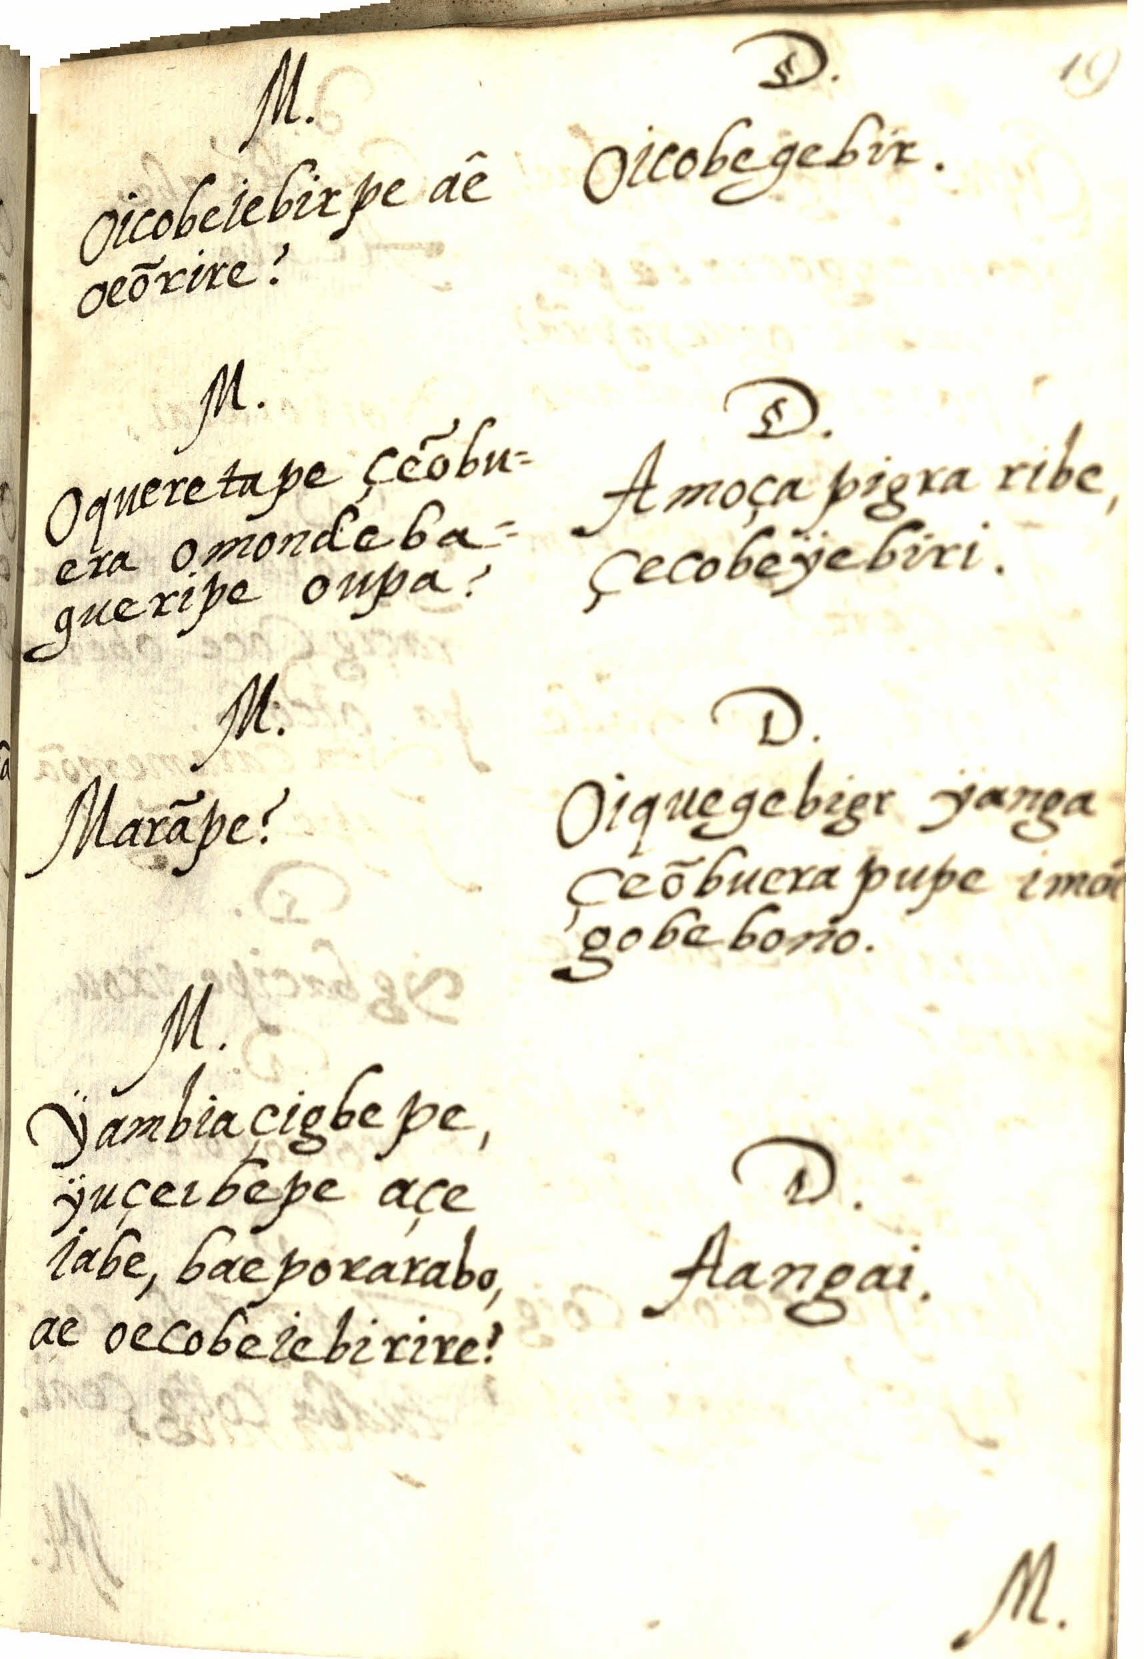 19
M.
Oicobeiebir pe aê
oeõrire?
D.
Oicobegebir.
M.
Oquere tape çeõbu=
era omondeba=
gueripe oupa?
D.
Amoçapigra ribe,
çecobeÿebiri.
M.
Marãpe?
D.
Oiquegebigr ÿanga
çeõbuera pupe imoĩ
gobebono.
M.
Ÿambiaçigbe pe,
ÿuçeibepe açe
iabe, bae porarabo,
ae oecobeiebirire?
D.
Aangai.
M.